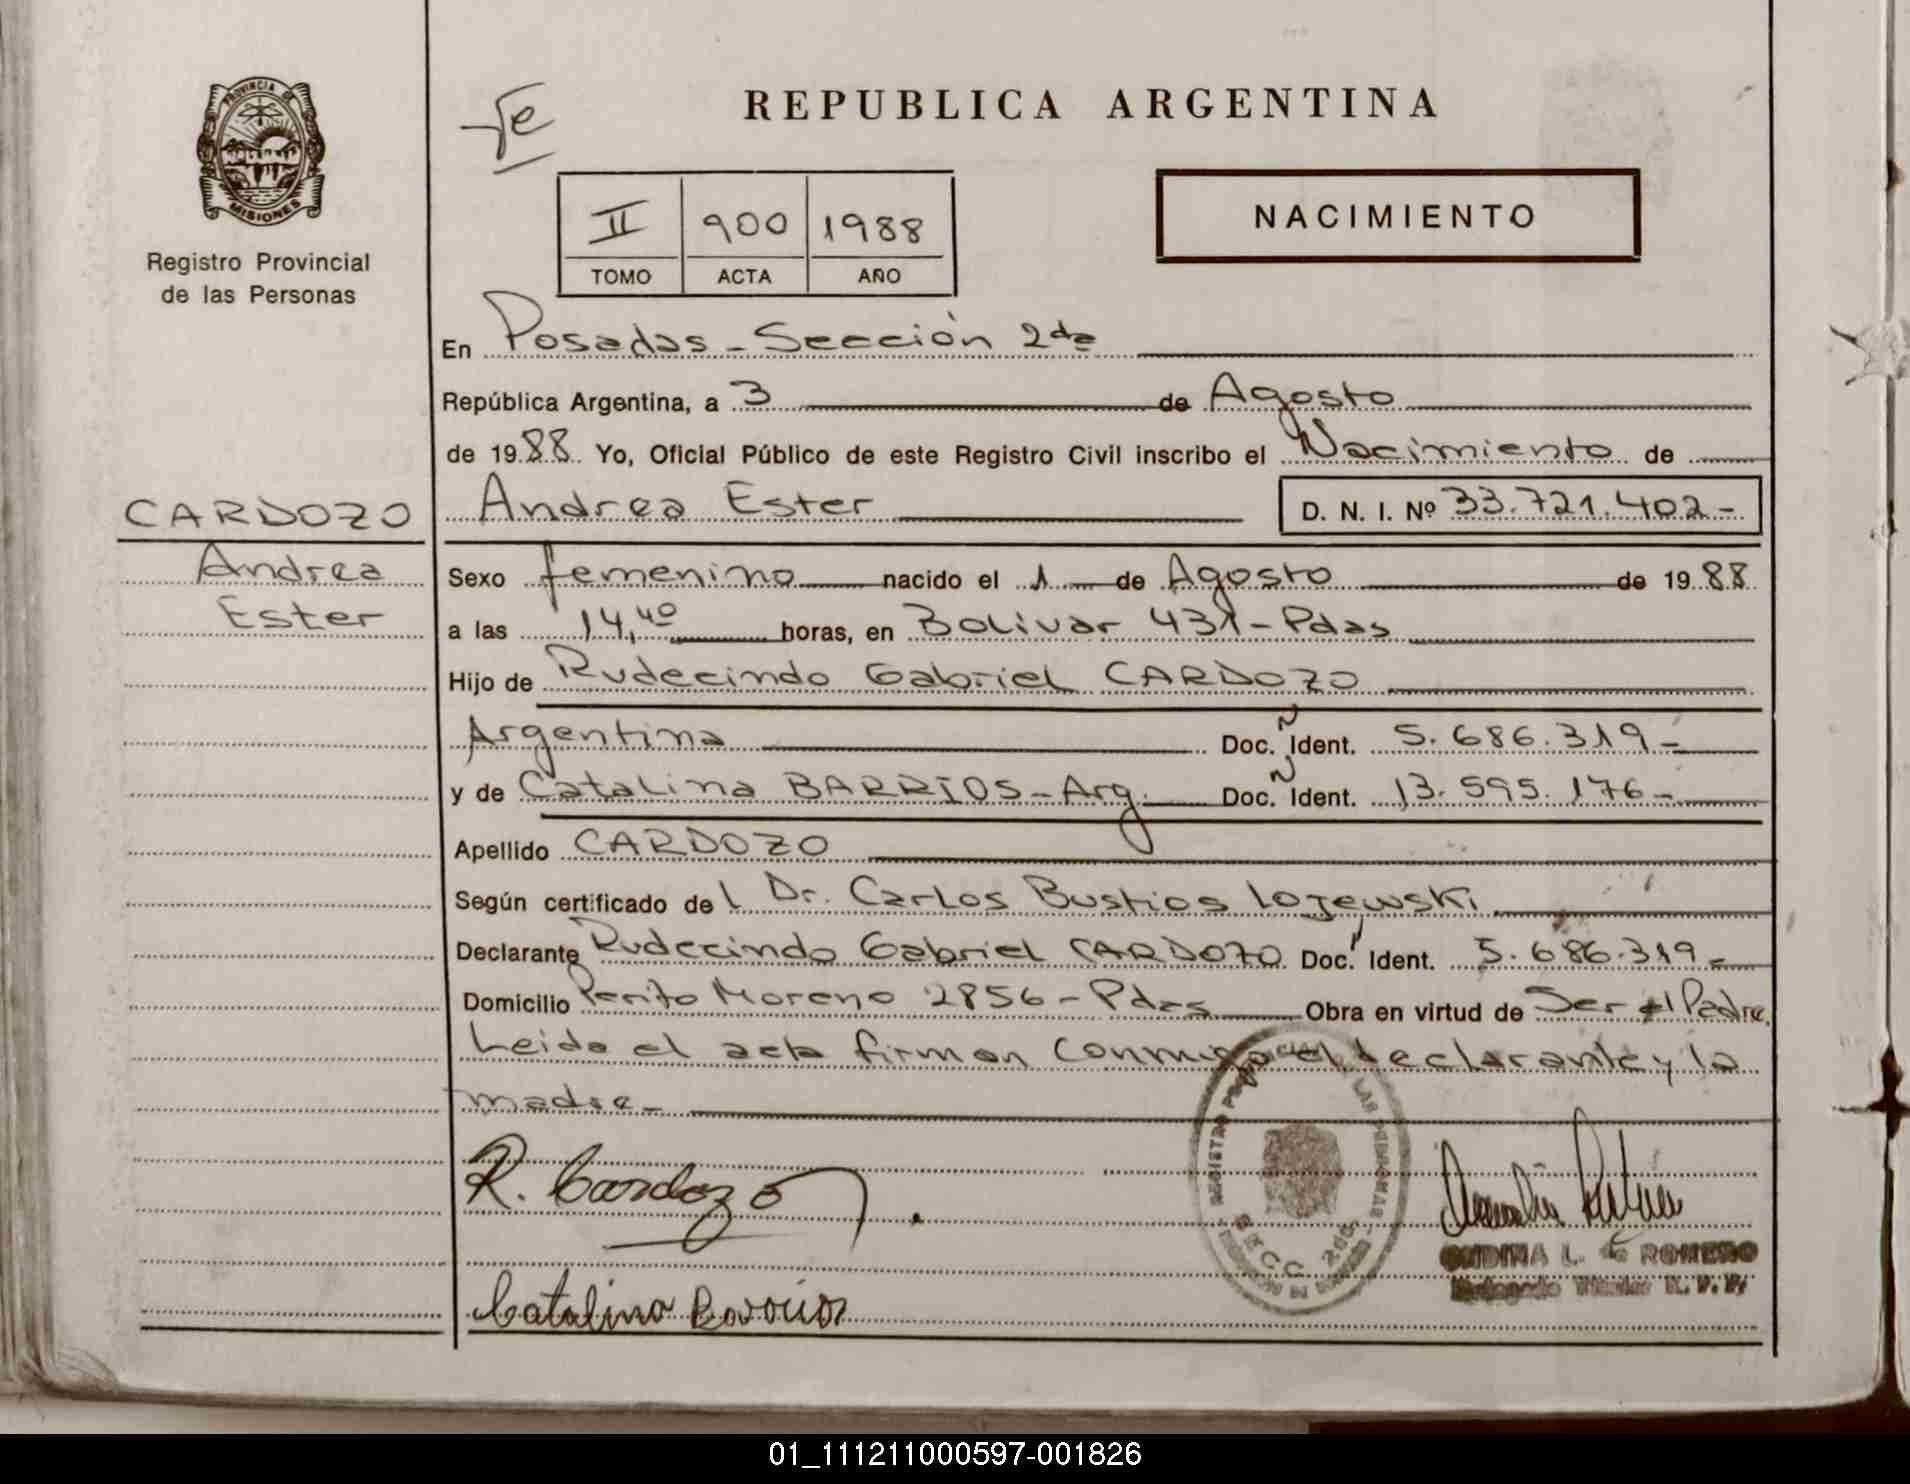 PROVINCIA DE
MISIONES
Registro Provincial
de las Personas
REPUBLICA ARGENTINA
NACIMIENTO
II 900 1988
TOMO ACTA AÑO
En Posadas - Sección 2da
República Argentina, a 3 de Agosto
de 1988 Yo, Oficial Público de este Registro Civil inscribo el Nacimiento de
CARDOZO
Andrea
Ester
Andrea Ester D. N. I. Nº 33.721.402-
Sexo femenino nacido el 1 de Agosto de 1988
a las 14,40 horas, en Bolivar 431 - Pdas
Hijo de Rudecindo Gabriel CARDOZO
Argentina Doc. Ident. 5.686.319-
y de Catalina BARRIOS - Arg. Doc. Ident. 13.595.176-
Apellido CARDOZO
Según certificado del Dr. Carlos Bustios Lojewski
Declarante Rudecindo Gabriel CARDOZO Doc. Ident. 5.686.319-
Domicilio Perito Moreno 2856 - Pdas Obra en virtud de Ser el Padre.
Leida el acta firman conmigo el declarante y la
madre-
R. Cardozo
Catalina Barrios
REGISTRO PROVINCIAL DE LAS PERSONAS
SECC. 2da.
L. de ROMERO
01_111211000597-001826